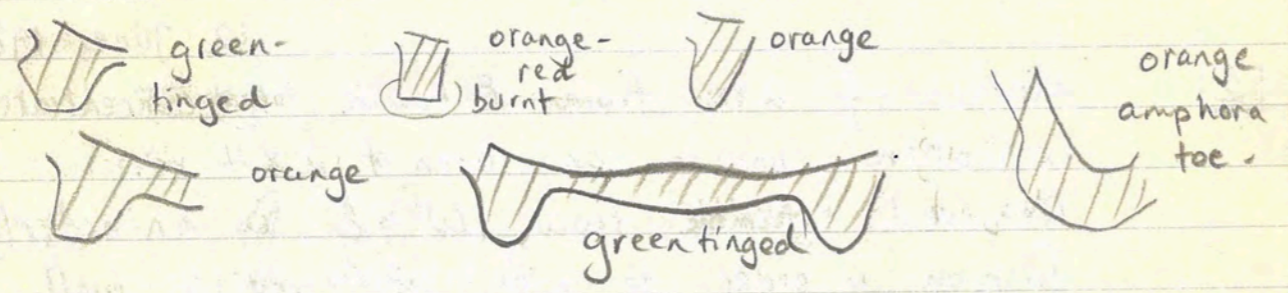 green-
tinged
orange-
red
burnt
orange
orange
amphora
toe.
orange
green tinged